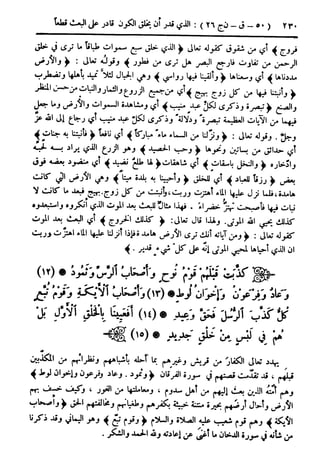 ٢٣٠ (٥٠ - ق - ج ٢٦) : الذي قدر أن يخلق الكون قادر على البعث قطعاً
فروج ﴾ أي من شقوق كقوله تعالى ﴿ الذي خلق سبع سموات طباقاً ما ترى في خلق
الرحمن من تفاوت فارجع البصر هل ترى من فطور ﴾ وقوله تعالى : ﴿ والأرض
مددناها ﴾ أي وسعناها ﴿ وألقينا فيها رواسي ﴾ وهي الجبال لئلا تميد بأهلها وتضطرب
﴿ وأنبتنا فيها من كل زوج بهيج ﴾ أي من جميع الزروع والثمار والنبات من حسن المنظر
والصنع ﴿ تبصرة وذكرى لكل عبد منيب ﴾ أي ومشاهدة السموات والأرض وما جعل
فيهما من الآيات العظيمة تبصرة ودلالة وذكرى لكل عبد منيب أي رجاع إلى الله عز
وجل . وقوله تعالى : ﴿ ونزلنا من السماء ماء مباركاً ﴾ أي نافعاً ﴿ فأنبتنا به جنات ﴾
أي حدائق من بساتين ونحوها ﴿ وحب الحصيد ﴾ وهو الزرع الذي يراد به حبه
وادخاره ﴿ والنخل باسقات ﴾ أي شاهقات ﴿ لها طلع نضيد ﴾ أي منضود بعضه فوق
بعض ﴿ رزقاً للعباد ﴾ أي للخلق ﴿ وأحيينا به بلدة ميتاً ﴾ وهي الأرض التي كانت
هامدة ، فلما نزل عليها الماء اهتزت وربت ، وأنبتت من كل زوج بهيج فبعد ما كانت لا
نبات فيها فأصبحت تهتز خضراء . فهذا مثال للبعث بعد الموت الذي أنكروه واستبعدوه
كذلك يحيي الله الموتى . ولهذا قال تعالى : ﴿ كذلك الخروج ﴾ أي البعث بعد الموت
كقوله تعالى : ﴿ ومن آياته أنك ترى الأرض هامدة فإذا أنزلنا عليها الماء اهتزت وربت
إن الذي أحياها لمحيي الموتى إنه على كل شيء قدير . ﴾
﴿ كَذَّبَتْ قَبْلَهُمْ قَوْمُ نُوحٍ وَأَصْحَابُ الرَّسِّ وَثَمُودُ * (١٢)
وَعَادٌ وَفِرْعَوْنُ وَإِخْوَانُ لُوطٍ * (١٣) وَأَصْحَابُ الْأَيْكَةِ وَقَوْمُ تُبَّعٍ
كُلٌّ كَذَّبَ الرُّسُلَ فَحَقَّ وَعِيدِ * (١٤) أَفَعَيِينَا بِالْخَلْقِ الْأَوَّلِ بَلْ
هُمْ فِي لَبْسٍ مِنْ خَلْقٍ جَدِيدٍ * (١٥) ﴾
يهدد تعالى الكفار من قريش وغيرهم بما أحله بأشباههم ونظرائهم من المكذبين
قبلهم ، قد تقدمت قصتهم في سورة الفرقان ﴿ وثمود . وعاد وفرعون وإخوان لوط ﴾
وهم أمته الذين بعث إليهم من أهل سدوم ، ومعاملتها من الغور ، وكيف خسف بهم
الأرض وأحال أرضهم بحيرة منتنة خبيثة بكفرهم وطغيانهم ومخالفتهم الحق ﴿ وأصحاب
الأيكة ﴾ وهم قوم شعيب عليه الصلاة والسلام ﴿ وقوم تبع ﴾ وهو اليماني وقد ذكرنا
من شأنه في سورة الدخان ما أغنى عن إعادته ولله الحمد والشكر .